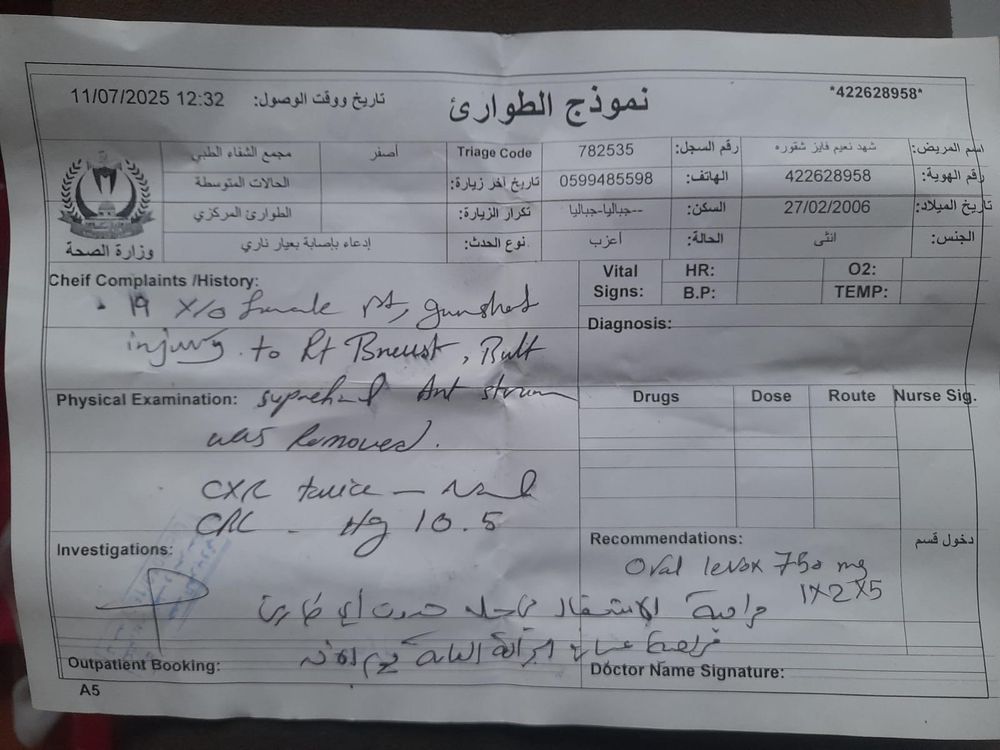 *422628958*
نموذج الطوارئ
تاريخ ووقت الوصول: 11/07/2025 12:32
اسم المريض: شهد نعيم فايز شقوره رقم السجل: 782535 Triage Code أصفر مجمع الشفاء الطبي
رقم الهوية: 422628958 الهاتف: 0599485598 تاريخ آخر زيارة: الحالات المتوسطة
تاريخ الميلاد: 27/02/2006 السكن: --جباليا-جباليا تكرار الزيارة: الطوارئ المركزي
الجنس: انثى الحالة: أعزب نوع الحدث: إدعاء بإصابة بعيار ناري
وزارة الصحة
Cheif Complaints /History:
19 y/o female Pt, gunshot
injury to Rt Breast,
Physical Examination:
Ant
was Removed.
CXR twice –
CBC - Hg 10.5
Investigations:
Outpatient Booking:
A5
Vital Signs: HR: O2:
B.P: TEMP:
Diagnosis:
Drugs Dose Route Nurse Sig.
Recommendations: دخول قسم
Oral levox 750 mg
1x2x5
مراجعة الاستقبال في حاله حدوث أي طارئ
مراجعة عيادة الجراحة العامة يوم
Doctor Name Signature: